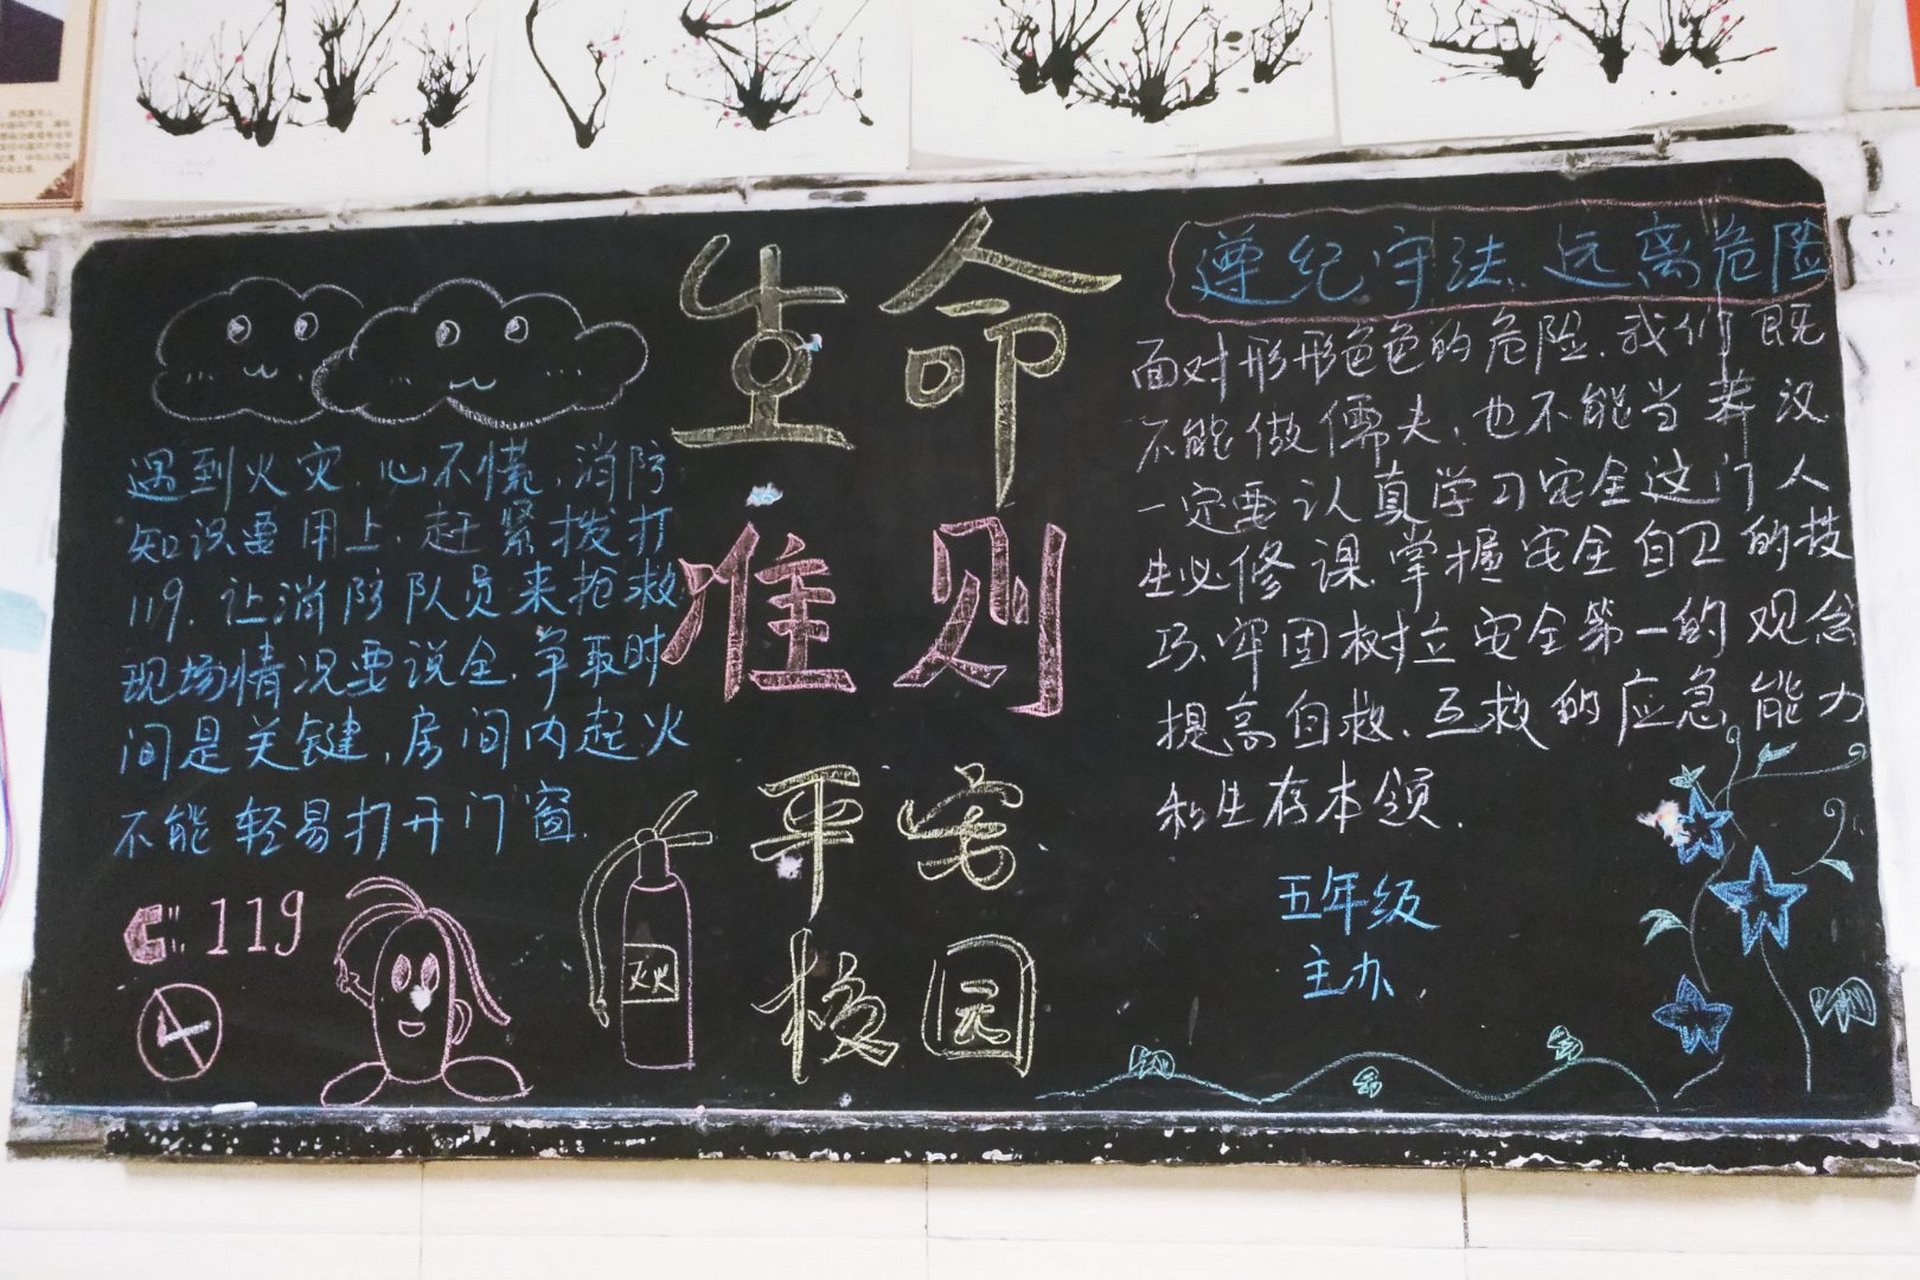 生命
准则
平安
校园
遇到火灾.心不慌,消防
知识要用上.赶紧拨打
119.让消防队员来抢救
现场情况要说全.争取时
间是关键,房间内起火
不能轻易打开门窗.
119
灭火
遵纪守法.远离危险
面对形形色色的危险.我们既
不能做儒夫,也不能当莽汉
一定要认真学习安全这门人
生必修课.掌握安全自卫的技
巧.牢固树立安全第一的观念
提高自救、互救的应急能力
和生存本领.
五年级
主办.